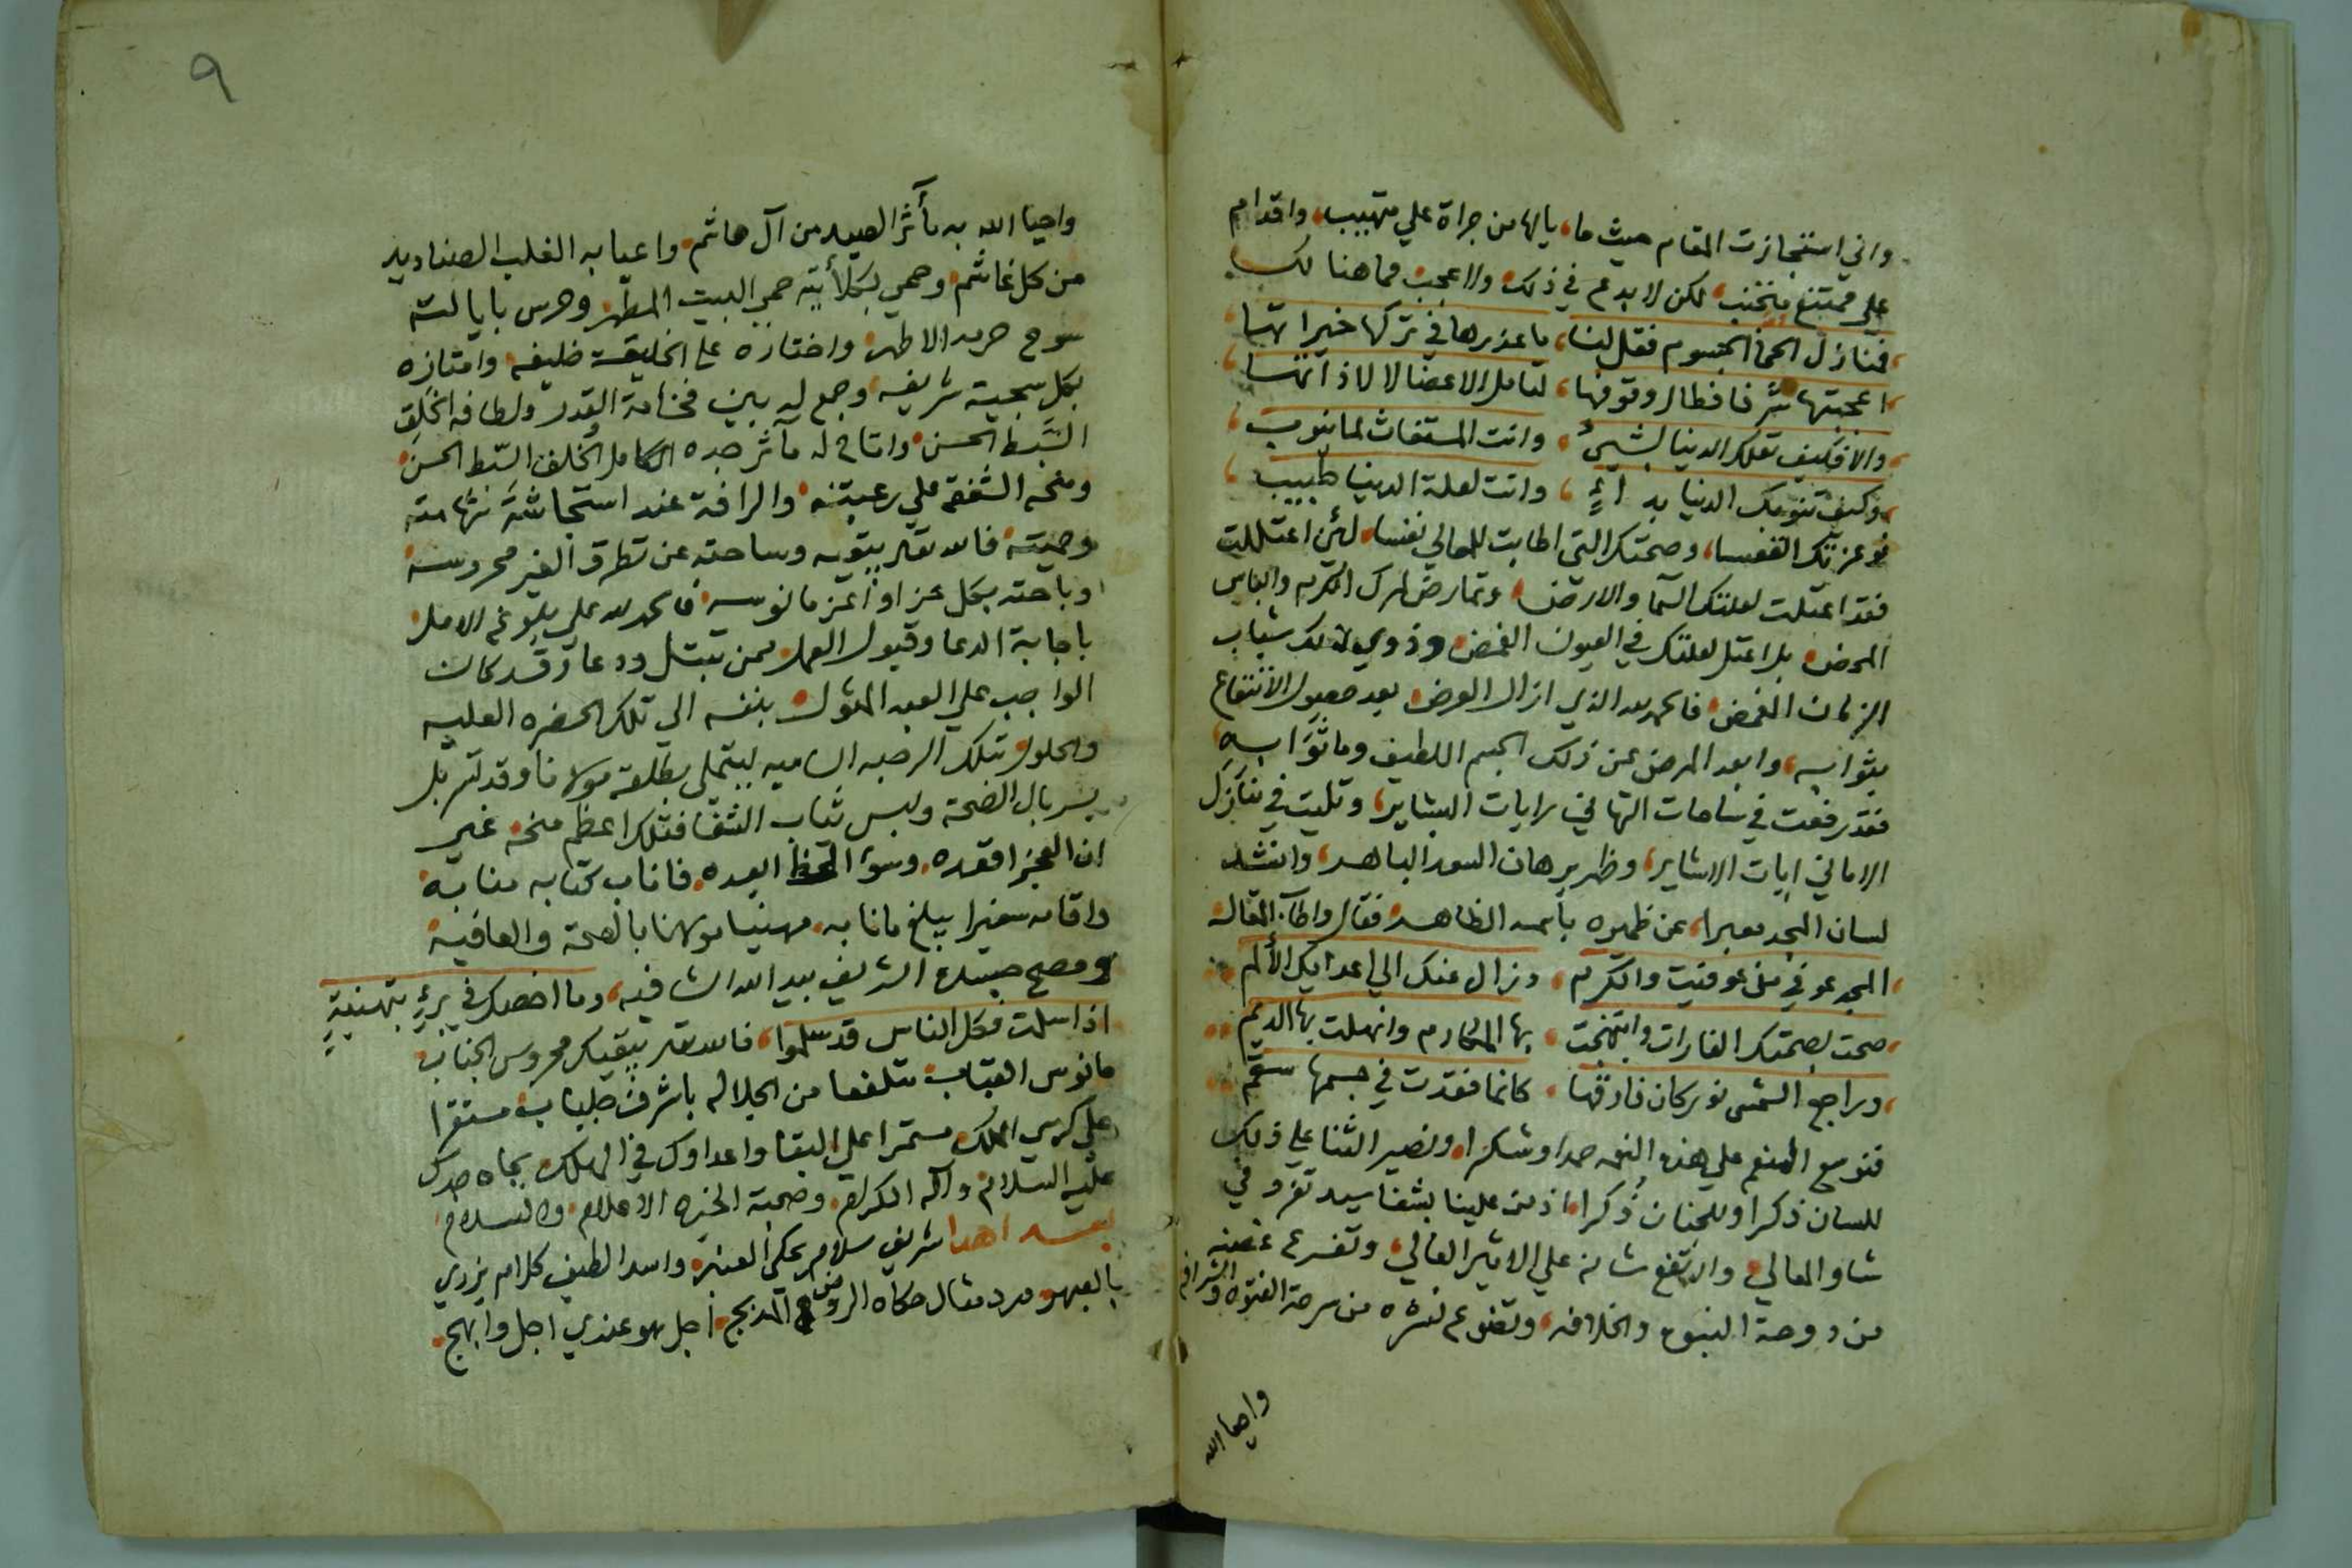 واني استجازت المقام حيث ما، يالها من جراة علي متهيب، واقدام
علي ممتنع متجنب، لكن لا بدع في ذلك ولا عجب فما هنالك
ومنازل الحما الجسوم فقل لنا، ما عذرها في تركها خيراتها
اعجبتها شرفا فطال وقوفها، لتامل الاعضا لا لاذاتها
والا فكيف تعلك الدنيا بشيء، وانت المستغاث لما ينوب
وكيف تنوبك الدنيا بداء، وانت لعلة الدنيا طبيب
فوعزتك القعسا، وصحتك التي اطابت للمعالي نفسا، لئن اعتللت
فقد اعتلت لعلتك السما والارض، وتمارض لمرضك الكرم والباس
المحض، بل اعتل لعلتك في العيون الغمض، وذوي لذلك شباب
الزمان الغض، فالحمد لله الذي ازال العرض، بعد حصول الانتفاع
بثوابه، وابعد المرض عن ذلك الجسم اللطيف وما ثوا به
فقد رفعت في ساحات التهاني رايات البشاير، وتليت في منازل
الاماني ايات الاشاير، وظهر برهان السعد الباهر، وانشد
لسان المجد معبرا، عن ظهوره باسمه الظاهر، فقال واطاب المقاله
المجد عوفي مذ عوفيت والكرم، وزال عنك الي اعدايك الألم
صحت بصحتك الغارات وابتهجت، بها المكارم وانهلت بها الديم
وراجع الشمس نور كان فارقها، كانما فقدت في جسمها سقم
فنوسع المنعم علي هذه النعمه حمدا وشكرا، ونصير الثنا علي ذلك
للسان ذكرا وللجنان ذُكرا، اذ من علينا بشفا سيد تفرد في
شاو المعالي، وارتفع شانه علي الاثير العالي، وتفرع غصنه
من دوحة النبوه والخلافه، وتضوع نشره من سرحة الفتوه والشرافه
واحيا الله
٩
واحيا الله به مآثر الصيد من آل هاشم، واعيا به الغلب الصناديد
من كل غاشم، وحمي بكلأيته حمي البيت المطهر، وحرس بايالته
سوح حرمه الاطهر، واختاره علي الخليقه خليفه، وامتازه
بكل سجية شريفه، وجمع له بين فخامة القدر ولطافه الخلق
السَّبط الحسن، واقام له مآثر جده الكامل الخلق السّبط الحسن
ومنحه الشفقه علي رعيته، والرافة عند استجاشة شهامته
وحميته، فالله تعالي يبقيه وساحته عن تطرق الغير محروسه
وباحته بكل عز اوأعز مانوسه، فالحمد لله علي بلوغ الامل
باجابة الدعا وقبول العمل، ممن تبتل ودعا، وقد كان
الواجب علي العبد المثول، بنفسه الي تلك الحضره العليه
والحلول بتلك الرحبه الساميه ليتملي بطلعة مولانا وقد تسربل
بسربال الصحة ولبس ثياب الشفا فتلك اعظم منحه، غير
ان العجز اقعده، وسوء الحظ ابعده، فاناب كتابه منابه
واقامه سفيرا يبلغ ما نابه، مهنيا مولانا بالصحة والعافيه
ومصح جسده الشريف بيد الله الشافيه، وما اخصك في برء بتهنية
اذا سلمت فكل الناس قد سلموا، فالله تعالي يبقيك محروس الجناب
مانوس القباب متلفعا من الجلاله باشرف جلباب، مستقرا
علي كرسي الملك، مستمرا علي البقا واعداوك في الهلك، بجاه جدك
عليه السلام، وآله الكرام، وصحبة الخيره الاعلام، والسلام
بعد اهدا شريف سلام يحكي العنبر، واسدا لطيف كلام يزري
بالعبهر، ورد مثال حكاه الروض المدبج، اجل هو عندي اجل وابهج